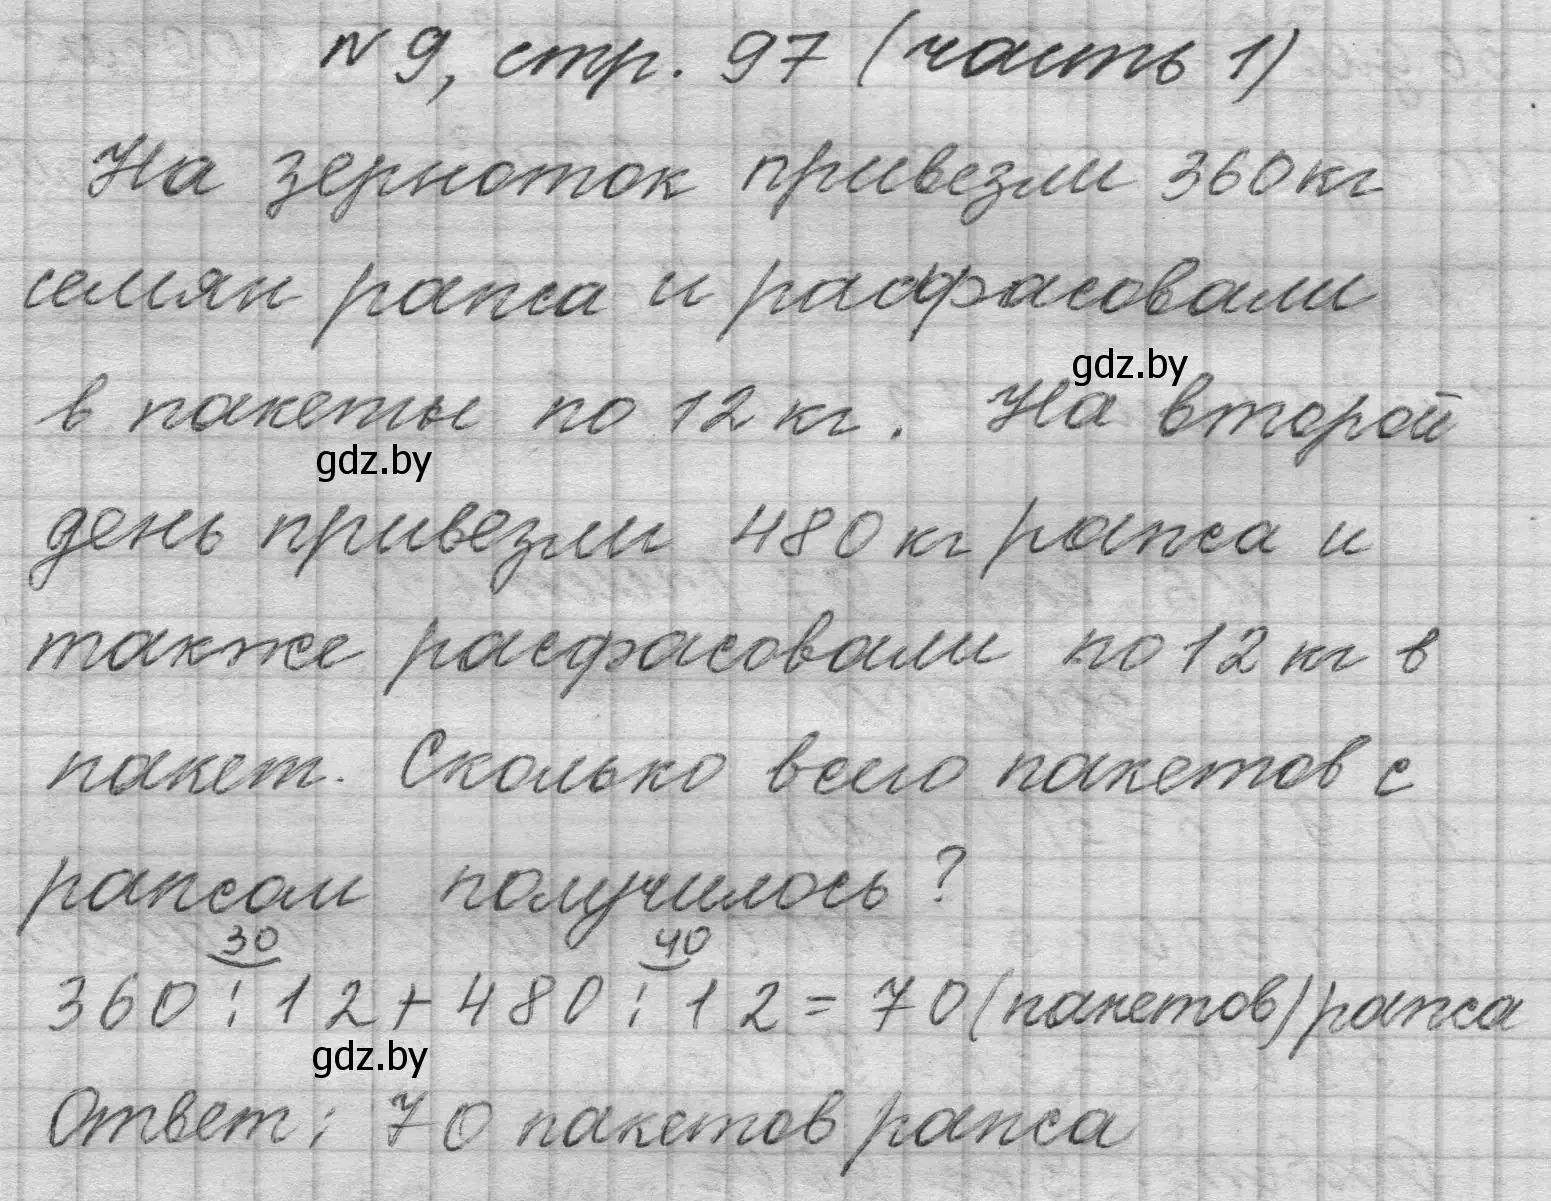 № 9, стр. 97 (часть 1)
На зерноток привезли 360 кг
семян рапса и расфасовали
gdz.by
в пакеты по 12 кг. На второй
gdz.by
день привезли 480 кг рапса и
также расфасовали по 12 кг в
пакет. Сколько всего пакетов с
рапсом получилось?
30 40
360 : 12 + 480 : 12 = 70 (пакетов) рапса
gdz.by
Ответ: 70 пакетов рапса